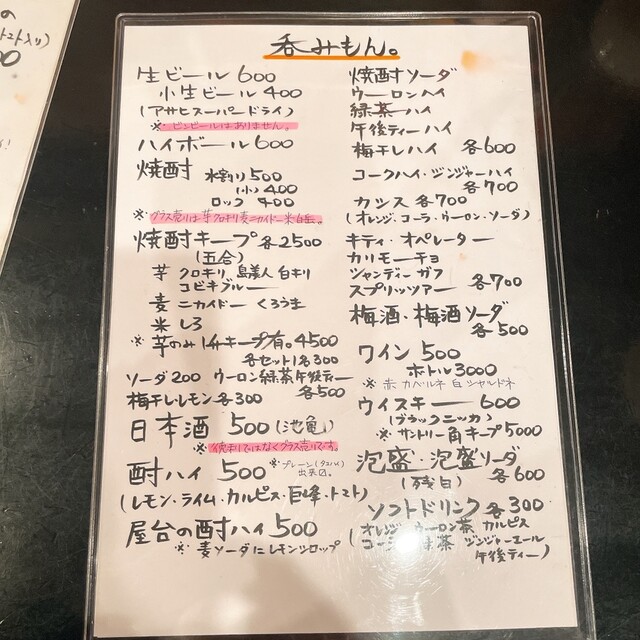 呑みもん。
生ビール 600
小生ビール 400
(アサヒスーパードライ)
※ビンビールはありません。
ハイボール 600
焼酎 水割り 500
(小) 400
ロック 400
焼酎キープ 各2500
(五合)
芋 クロキリ 島美人 白キリ
コビキブルー
麦 ニカイドー くろうま
米 しろ
※芋のみ1升キープ有。4500
各セット1名300
ソーダ200 ウーロン緑茶午後ティー
各500
梅干しレモン各300
日本酒 500 (池亀)
※徳利ではなくグラス売りです。
酎ハイ 500 ※プレーン(タコハイ)
出来〼。
(レモン・ライム・カルピス・巨峰・トマト)
屋台の酎ハイ 500
※麦ソーダにレモンシロップ
焼酎ソーダ
ウーロンハイ
緑茶ハイ
午後ティーハイ
梅干しハイ 各600
コークハイ・ジンジャーハイ
各700
カシス 各700
(オレンジ・コーラ・ウーロン・ソーダ)
キティ・オペレーター
カリモーチョ
シャンディーガフ
スプリッツァー 各700
梅酒・梅酒ソーダ
各500
ワイン 500
ボトル3000
※赤 カベルネ 白 シャルドネ
ウイスキー 600
(ブラックニッカ)
※サントリー角キープ5000
泡盛・泡盛ソーダ
(残白) 各600
ソフトドリンク 各300
(オレンジ ウーロン茶 カルピス
ジンジャーエール
午後ティー)